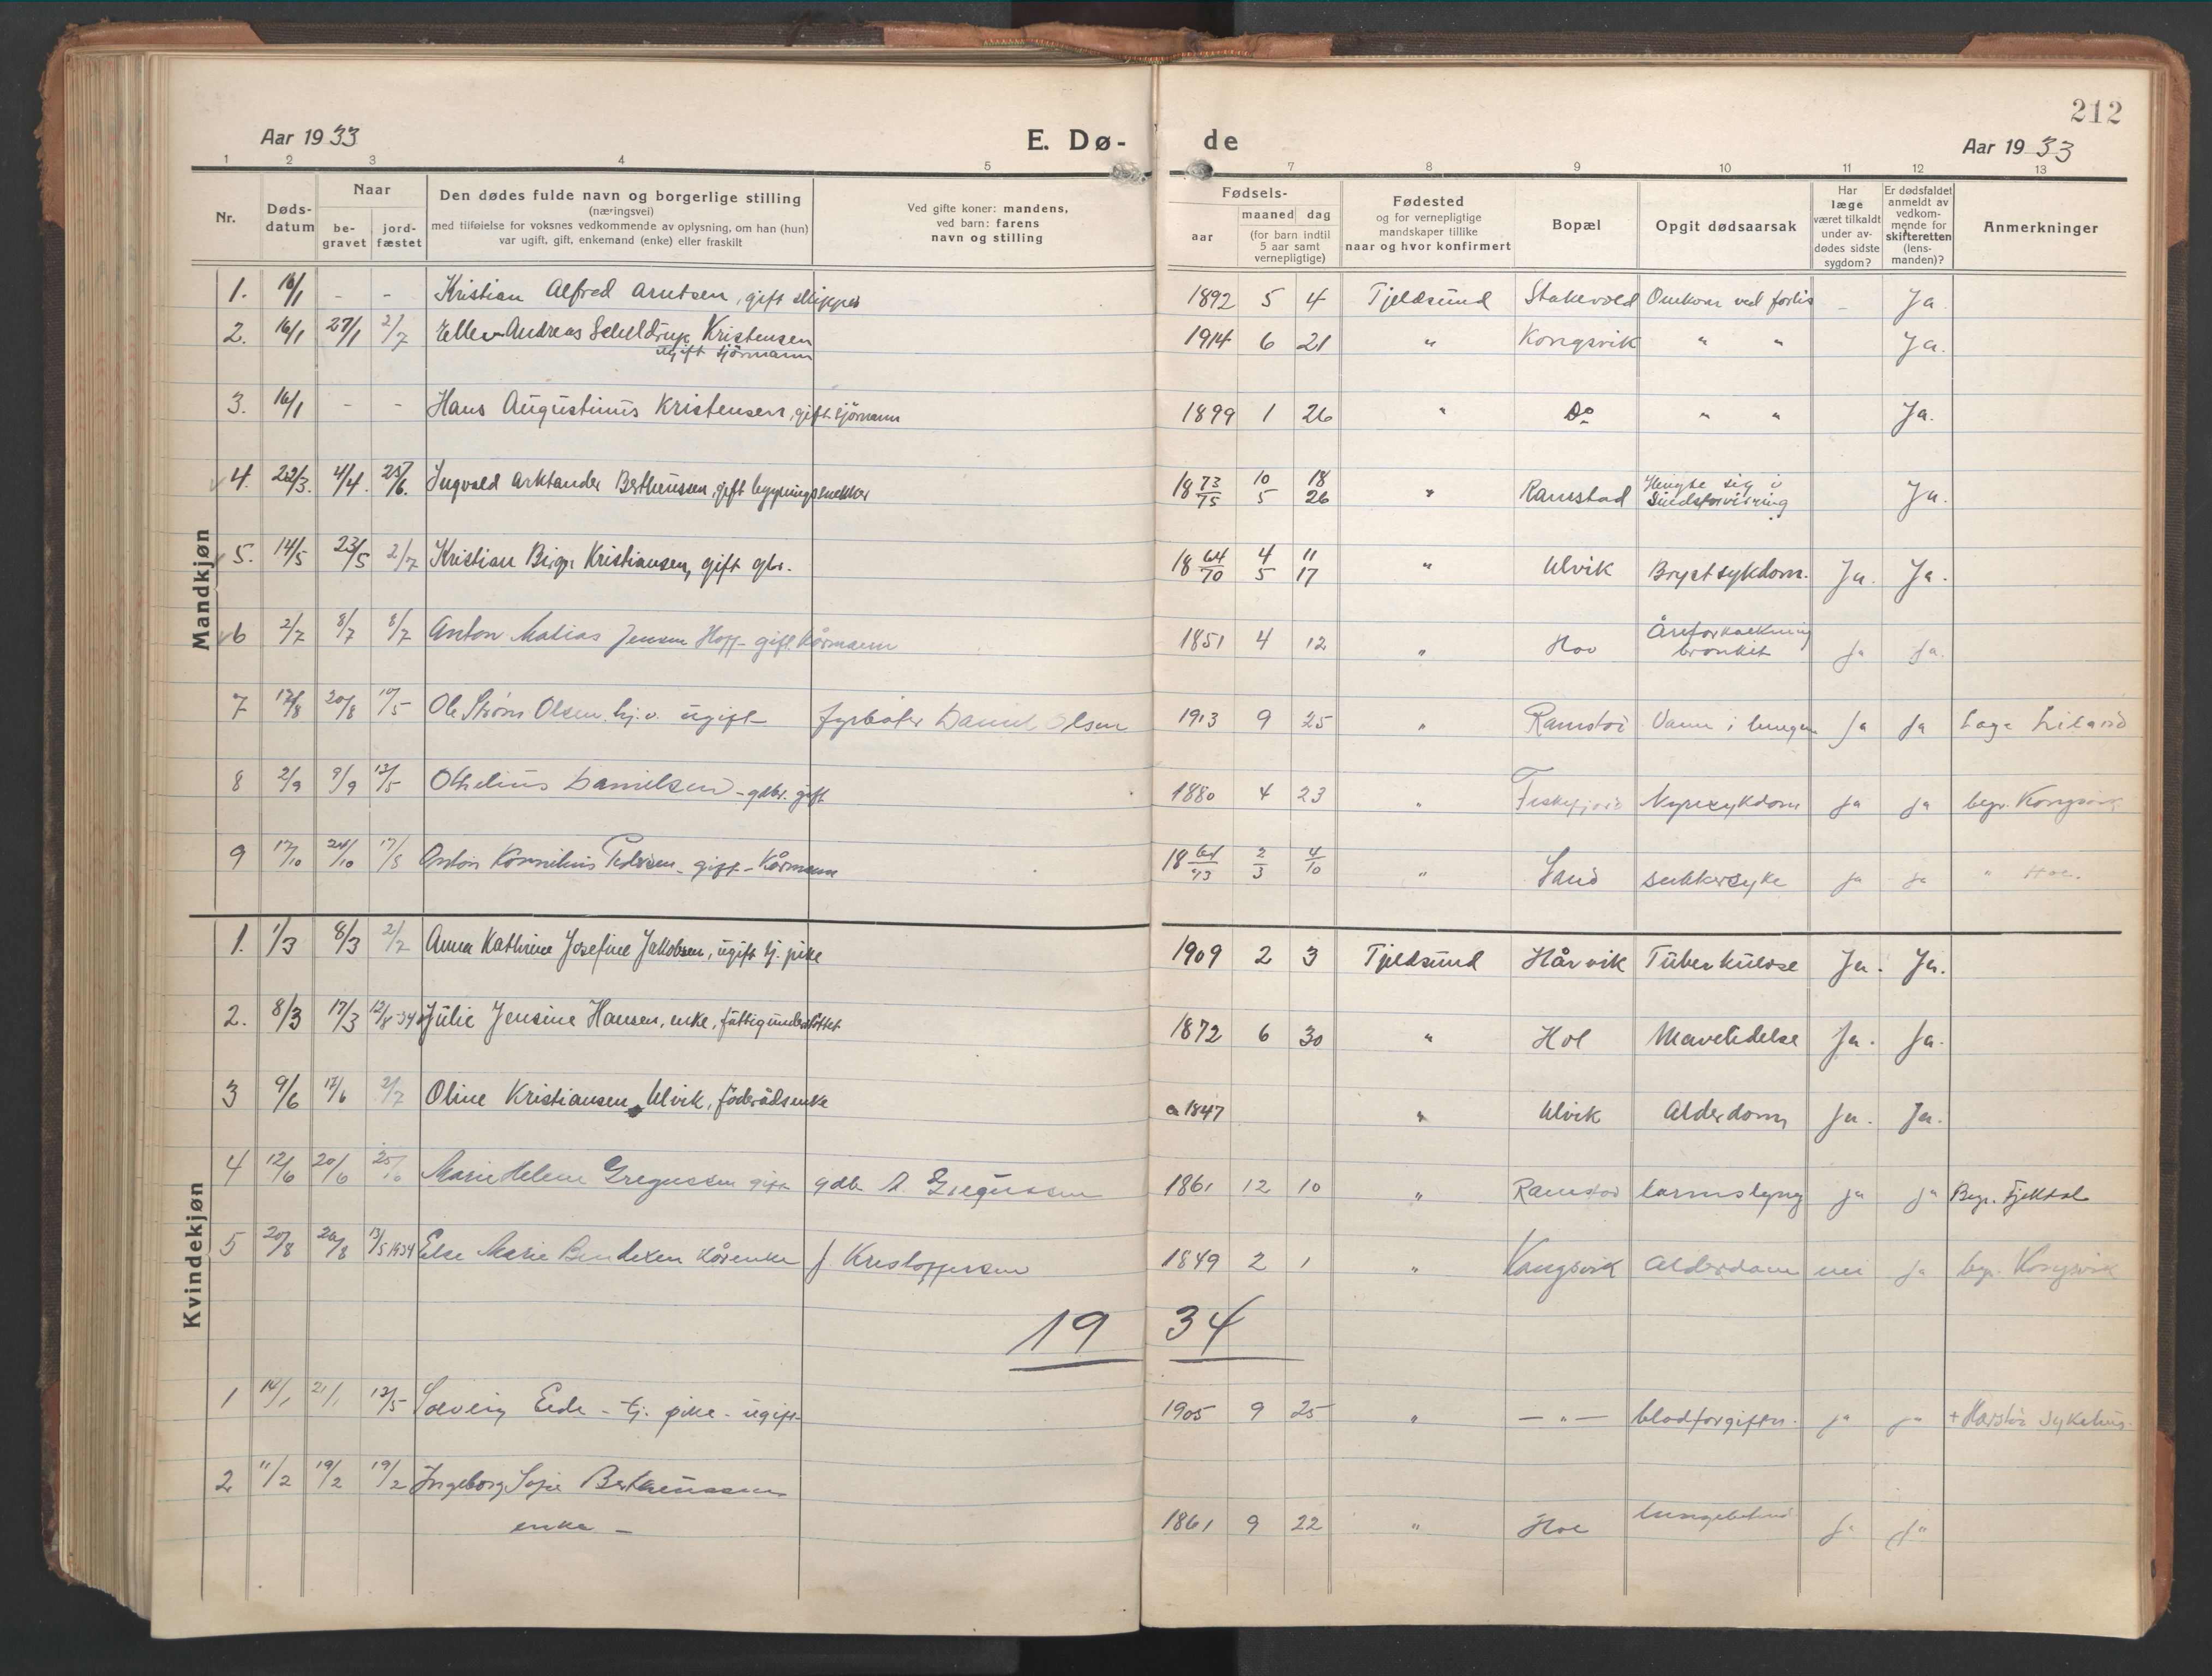 212
Aar 1933 E. Dø- de Aar 1933
1 2 3 4 5 7 8 9 10 11 12 13
Nr.
Døds-
datum
Naar
be-
gravet
jord-
fæstet
Den dødes fulde navn og borgerlige stilling
(næringsvei)
med tilføielse for voksnes vedkommende av oplysning, om han (hun)
var ugift, gift, enkemand (enke) eller fraskilt
Ved gifte koner: mandens,
ved barn: farens
navn og stilling
Fødsels-
aar
maaned dag
(for barn indtil
5 aar samt
vernepligtige)
Fødested
og for vernepligtige
mandskaper tillike
naar og hvor konfirmert
Bopæl
Opgit dødsaarsak
Har
læge
været tilkaldt
under av-
dødes sidste
sygdom?
Er dødsfaldet
anmeldt av
vedkom-
mende for
skifteretten
(lens-
manden)?
Anmerkninger
Mandkjøn
1. 16/1 - - Kristian Alfred Arntsen, gift skipper 1892 5 4 Tjeldsund Stakevold Omkom ved forlis - Ja.
2. 16/1 27/1 2/7 Ellev Andreas Scheldrup Kristensen 1914 6 21 " Kongsvik " " Ja.
ugift sjömann
3. 16/1 - - Hans Augustinus Kristensen, gift sjömann 1899 1 26 " Do " " Ja.
4. 22/3. 4/4. 25/6. Ingvald Arktander Bertheussen, gift bygningsnekker 18 73/75 10/5 18/26 " Ramstad Hengte sig i
Sindsforvirring Ja.
5. 14/5 23/5 2/7 Kristian Birger Kristiansen, gift gbr. 18 64/70 4/5 11/17 " Ulvik Brystsykdom. Ja. Ja.
6 2/7 8/7 8/7 Anton Matias Jensen Hoff - gift kårmann 1851 4 12 " Hov Åreforkalkning
bronkit Ja Ja.
7 12/8 20/8 10/5 Ole Strøm Olsen, hj. v. ugift - fyrbøter Daniel Olsen 1913 9 25 " Ramstad Vann i lungen Ja Ja
8 2/9 9/9 13/5 Othelius Danielsen - gdbr. gift 1880 4 23 " Fiskefjord Nyresykdom Ja Ja begr. Kongsvik
9 17/10 24/10 17/8 Anton Kornelius Pedersen - gift - Kårmann 18 64/43 2/3 4/10 " Sand sukkersyke Ja Ja " Hol.
Kvindekjøn
1. 1/3 8/3 2/7 Anna Kathrine Josefine Jakobsen, ugift tj. pike 1909 2 3 Tjeldsund Hårvik Tuberkulose Ja. Ja.
2. 8/3 17/3 12/8-34 Julie Jensine Hansen, enke, fattigunderstöttet 1872 6 30 " Hol Mavelidelse Ja. Ja.
3 9/6 17/6 2/7 Oline Kristiansen Ulvik, föderådsenke 1847 " Ulvik Alderdom Ja. Ja.
4 12/6 20/6 Marie Helene Gregussen gift gdb. A. Gregussen 1861 12 10 " Ramstad tarmslyng Ja Ja Begr. Fjelldal
5 20/8 26/8 13/5 1934 Else Marie Bendixen kårenke f Kristoffersen 1849 2 1 " Kongsvik Alderdom nei Ja begr. Kongsvik
1934
1 14/1 21/1 12/5 Solveig Eide - tj. pike - ugift - 1905 9 25 " — " — blodforgiftn. Ja Ja + Harstad Sykehus.
2 11/2 19/2 19/2 Ingeborg Sofie Bertheussen
enke - 1861 9 22 " Hol Ja Ja